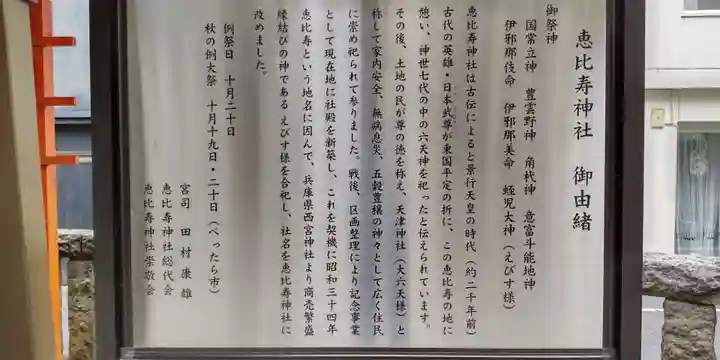 恵比寿神社　御由緒
御祭神
国常立神　豊雲野神　角杙神　意富斗能地神
伊邪那伎命　伊邪那美命　蛭児大神（えびす様）
恵比寿神社は古伝によると景行天皇の時代（約二千年前）
古代の英雄・日本武尊が東国平定の折に、この恵比寿の地に
憩い、神世七代の中の六天神を祀ったと伝えられています。
その後、土地の民が尊の徳を称え、天津神社（大六天様）と
称して家内安全、無病息災、五穀豊穣の神々として広く住民
に崇め祀られて参りました。戦後、区画整理により記念事業
として現在地に社殿を新築し、これを契機に昭和三十四年
恵比寿という地名に因んで、兵庫県西宮神社より商売繁盛
縁結びの神であるえびす様を合祀し、社名を恵比寿神社に
改めました。
例祭日　十月二十日
秋の例大祭　十月十九日・二十日（べったら市）
宮司　田村康雄
恵比寿神社総代会
恵比寿神社崇敬会